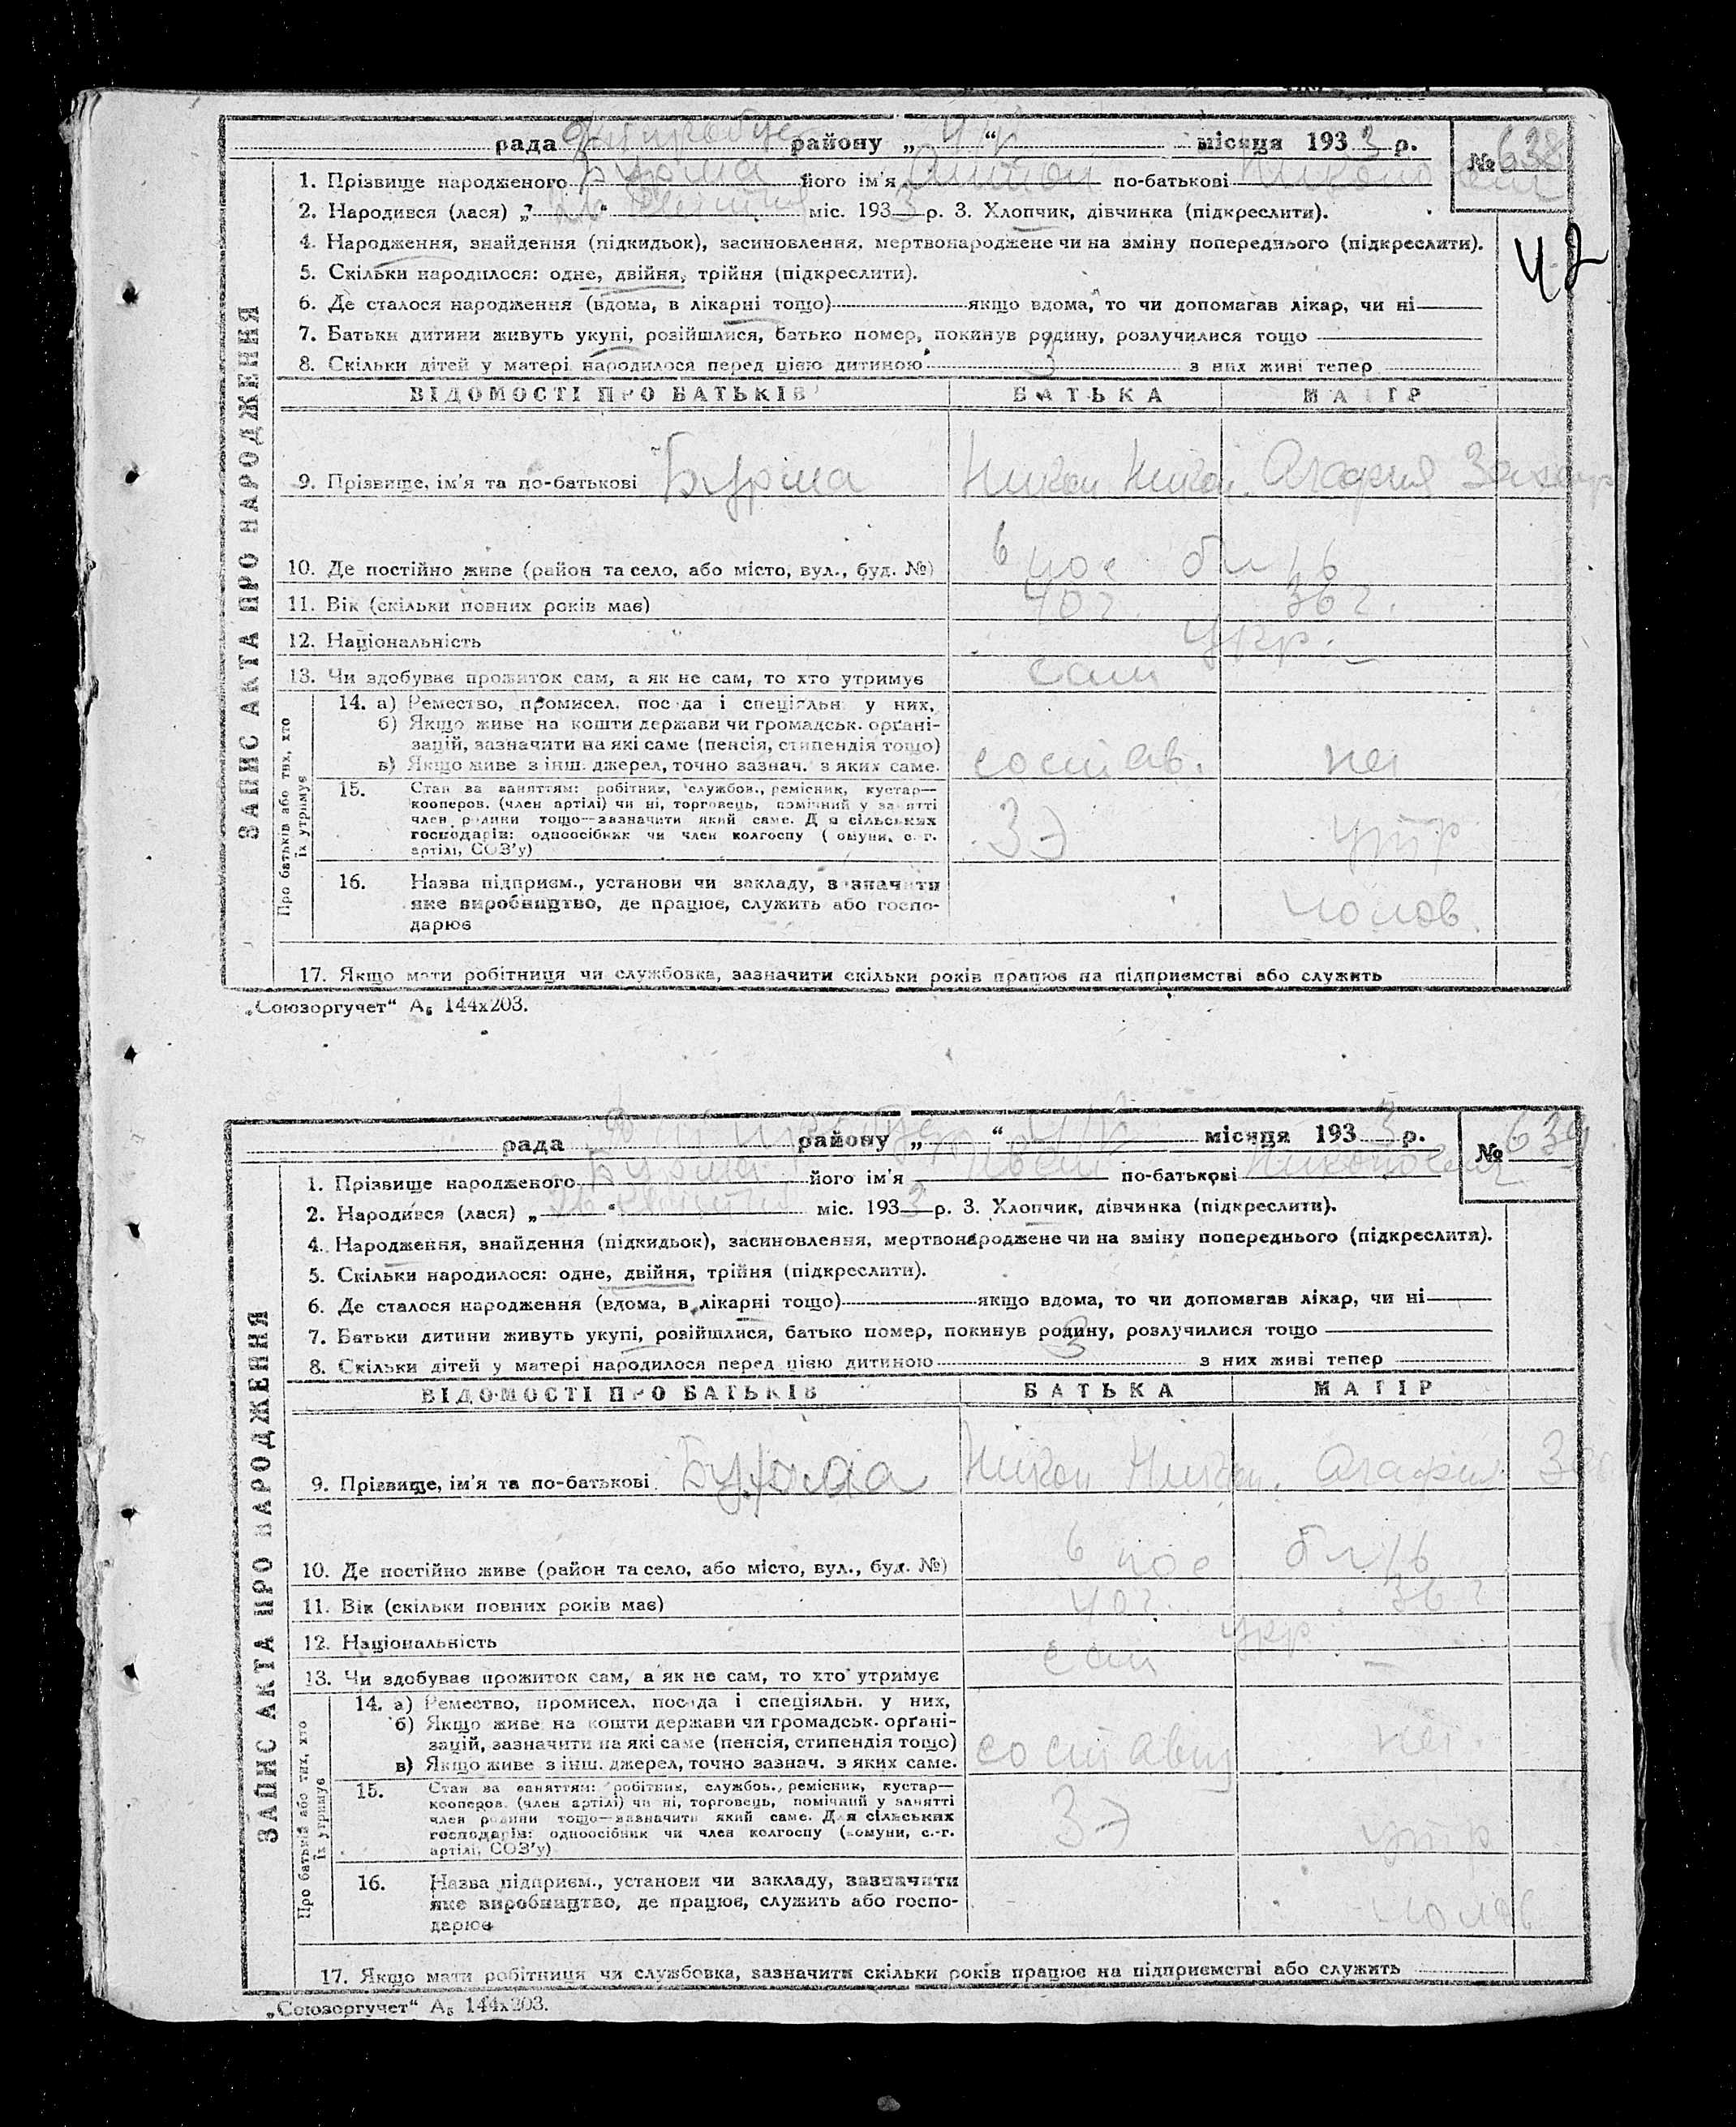 рада району „ “ місяця 1933 р.
№ 638
1. Прізвище народженого Бурма його ім'я Антон по-батькові
2. Народився (лася) „ “ міс. 1933 р. 3. Хлопчик, дівчинка (підкреслити).
42
4. Народження, знайдення (підкидьок), засиновлення, мертвонароджене чи на зміну попереднього (підкреслити).
5. Скільки народилося: одне, двійня, трійня (підкреслити).
6. Де сталося народження (вдома, в лікарні тощо) якщо вдома, то чи допомагав лікар, чи ні
7. Батьки дитини живуть укупі, розійшлися, батько помер, покинув родину, розлучилися тощо
8. Скільки дітей у матері народилося перед цією дитиною 3 з них живі тепер
ЗАПИС АКТА ПРО НАРОДЖЕННЯ
ВІДОМОСТІ ПРО БАТЬКІВ БАТЬКА МАТІР
9. Прізвище, ім'я та по-батькові Бурма Никон Никон. Агафия Захар
10. Де постійно живе (район та село, або місто, вул., буд. №) 6 пос
11. Вік (скільки повних років має) 40 г. 36 г.
12. Національність Укр.
13. Чи здобуває прожиток сам, а як не сам, то хто утримує сам —
Про батьків або тих, хто їх утримує
14. а) Ремество, промисел, посада і спеціяльн. у них,
б) Якщо живе на кошти держави чи громадськ. орґані-
зацій, зазначити на які саме (пенсія, стипендія тощо)
в) Якщо живе з інш. джерел, точно зазнач. з яких саме. состав. нет
15. Стан за заняттям: робітник, службов., ремісник, кустар—
кооперов. (член артілі) чи ні, торговець, помічний у занятті
член родини тощо—зазначити який саме. Для сільських
господарів: одноосібник чи член колгоспу (комуни, с.-г.
артілі, СОЗ'у) утр
16. Назва підприєм., установи чи закладу, зазначити
яке виробництво, де працює, служить або госпо-
дарює
17. Якщо мати робітниця чи службовка, зазначити скільки років працює на підприємстві або служить
„Союзоргучет“ А₅ 144х203.
рада району „ “ місяця 1933 р.
№ 639
1. Прізвище народженого Бурма його ім'я Иван по-батькові
2. Народився (лася) „ “ міс. 1933 р. 3. Хлопчик, дівчинка (підкреслити).
4. Народження, знайдення (підкидьок), засиновлення, мертвонароджене чи на зміну попереднього (підкреслити).
5. Скільки народилося: одне, двійня, трійня (підкреслити).
6. Де сталося народження (вдома, в лікарні тощо) якщо вдома, то чи допомагав лікар, чи ні
7. Батьки дитини живуть укупі, розійшлися, батько помер, покинув родину, розлучилися тощо
8. Скільки дітей у матері народилося перед цією дитиною 3 з них живі тепер
ЗАПИС АКТА ПРО НАРОДЖЕННЯ
ВІДОМОСТІ ПРО БАТЬКІВ БАТЬКА МАТІР
9. Прізвище, ім'я та по-батькові Бурма Никон Никон. Агафия
10. Де постійно живе (район та село, або місто, вул., буд. №) 6 пос
11. Вік (скільки повних років має) 40 г. 36 г
12. Національність укр
13. Чи здобуває прожиток сам, а як не сам, то хто утримує сам —
Про батьків або тих, хто їх утримує
14. а) Ремество, промисел, посада і спеціяльн. у них,
б) Якщо живе на кошти держави чи громадськ. орґані-
зацій, зазначити на які саме (пенсія, стипендія тощо)
в) Якщо живе з інш. джерел, точно зазнач. з яких саме. нет
15. Стан за заняттям: робітник, службов., ремісник, кустар—
кооперов. (член артілі) чи ні, торговець, помічний у занятті
член родини тощо—зазначити який саме. Для сільських
господарів: одноосібник чи член колгоспу (комуни, с.-г.
артілі, СОЗ'у) утр
16. Назва підприєм., установи чи закладу, зазначити
яке виробництво, де працює, служить або госпо-
дарює
17. Якщо мати робітниця чи службовка, зазначити скільки років працює на підприємстві або служить
„Союзоргучет“ А₅ 144х203.